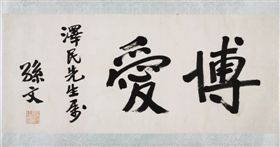 博愛
澤民先生屬
孫文